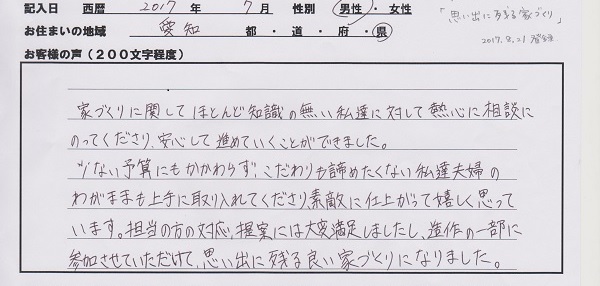 記入日 西暦 2017 年 7 月 性別 男性・女性
「思い出に残る家づくり」
お住まいの地域 愛知 都・道・府・県
2017.8.21 登録
お客様の声(200文字程度)
家づくりに関してほとんど知識の無い私達に対して熱心に相談に
のってくださり、安心して進めていくことができました。
少ない予算にもかかわらず、こだわりも諦めたくない私達夫婦の
わがままも上手に取り入れてくださり、素敵に仕上がって嬉しく思って
います。担当の方の対応、提案には大変満足しましたし、造作の一部に
参加させていただけて、思い出に残る良い家づくりになりました。